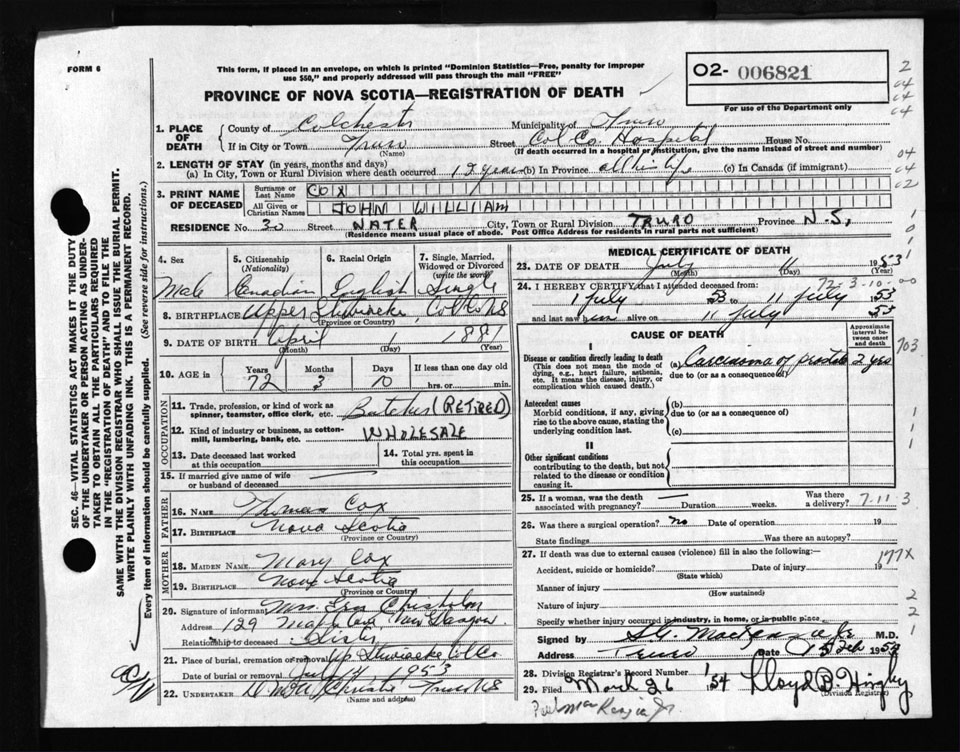 FORM 6
This form, if placed in an envelope, on which is printed "Dominion Statistics—Free, penalty for improper
use $50," and properly addressed will pass through the mail "FREE"
PROVINCE OF NOVA SCOTIA—REGISTRATION OF DEATH
02- 006821
For use of the Department only
2
04
04
04
1. PLACE OF DEATH
County of Colchester Municipality of Truro
If in City or Town Truro Street Col Co Hospital House No.
(Name) (If death occurred in a hospital or institution, give name instead of street and number)
2. LENGTH OF STAY (in years, months and days)
(a) In City, Town or Rural Division where death occurred 12 years (b) In Province all his life (c) In Canada (if immigrant)
04
04
02
3. PRINT NAME OF DECEASED
Surname or Last Name COX
All Given or Christian Names JOHN WILLIAM
RESIDENCE No. 30 Street WATER City, Town or Rural Division TRURO Province N-S,
(Residence means usual place of abode. Post Office Address for residents in rural parts not sufficient)
SEC. 46—VITAL STATISTICS ACT MAKES IT THE DUTY
OF THE UNDERTAKER OR PERSON ACTING AS UNDER-
TAKER TO OBTAIN ALL THE PARTICULARS REQUIRED
IN THE "REGISTRATION OF DEATH" AND TO FILE THE
SAME WITH THE DIVISION REGISTRAR WHO SHALL ISSUE THE BURIAL PERMIT.
WRITE PLAINLY WITH UNFADING INK. THIS IS A PERMANENT RECORD.
Every item of information should be carefully supplied. (See reverse side for instructions.)
4. Sex Male
5. Citizenship (Nationality) Canadian
6. Racial Origin English
7. Single, Married, Widowed or Divorced (write the word) Single
8. BIRTHPLACE Upper Stewiacke, Col Co NS
(Province or Country)
9. DATE OF BIRTH April 1 1881
(Month) (Day) (Year)
10. AGE in Years 72 Months 3 Days 10 If less than one day old
hrs. or min.
OCCUPATION
11. Trade, profession, or kind of work as
spinner, teamster, office clerk, etc. Butcher (RETIRED)
12. Kind of industry or business, as cotton-
mill, lumbering, bank, etc. WHOLESALE
13. Date deceased last worked
at this occupation
14. Total yrs. spent in
this occupation
15. If married give name of wife
or husband of deceased
FATHER
16. NAME Thomas Cox
17. BIRTHPLACE Nova Scotia
(Province or Country)
MOTHER
18. MAIDEN NAME Mary Cox
19. BIRTHPLACE Nova Scotia
(Province or Country)
20. Signature of informant Mrs. Chisholm
Address 129 New Glasgow.
Relationship to deceased Sister
21. Place of burial, cremation or removal Up Stewiacke Col Co
Date of burial or removal July 14 1953
22. UNDERTAKER Christie Truro NS
(Name and address)
MEDICAL CERTIFICATE OF DEATH
23. DATE OF DEATH July 11 1953
(Month) (Day) (Year)
24. I HEREBY CERTIFY that I attended deceased from: 72-3-10-00
1 July 1953 to 11 July 1953
and last saw him alive on 11 July 1953
CAUSE OF DEATH
Approximate interval between onset and death
I
Disease or condition directly leading to death
(This does not mean the mode of
dying, e.g., heart failure, asthenia,
etc. It means the disease, injury, or
complication which caused death.)
(a) Carcinoma of prostate 2 yrs
due to (or as a consequence of)
Antecedent causes
Morbid conditions, if any, giving
rise to the above cause, stating the
underlying condition last.
(b)
due to (or as a consequence of)
(c)
II
Other significant conditions
contributing to the death, but not
related to the disease or condition
causing it.
25. If a woman, was the death
associated with pregnancy? Duration weeks. Was there
a delivery? 7-11-3
26. Was there a surgical operation? no Date of operation 19
State findings Was there an autopsy?
27. If death was due to external causes (violence) fill in also the following:—
177X
Accident, suicide or homicide? Date of injury 19
(State which)
Manner of injury
(How sustained)
Nature of injury
Specify whether injury occurred in industry, in home, or in public place
Signed by M.D.
Address Truro Date Feb 195
28. Division Registrar's Record Number
29. Filed March 26 '54 Lloyd B.
(Division Registrar)
703